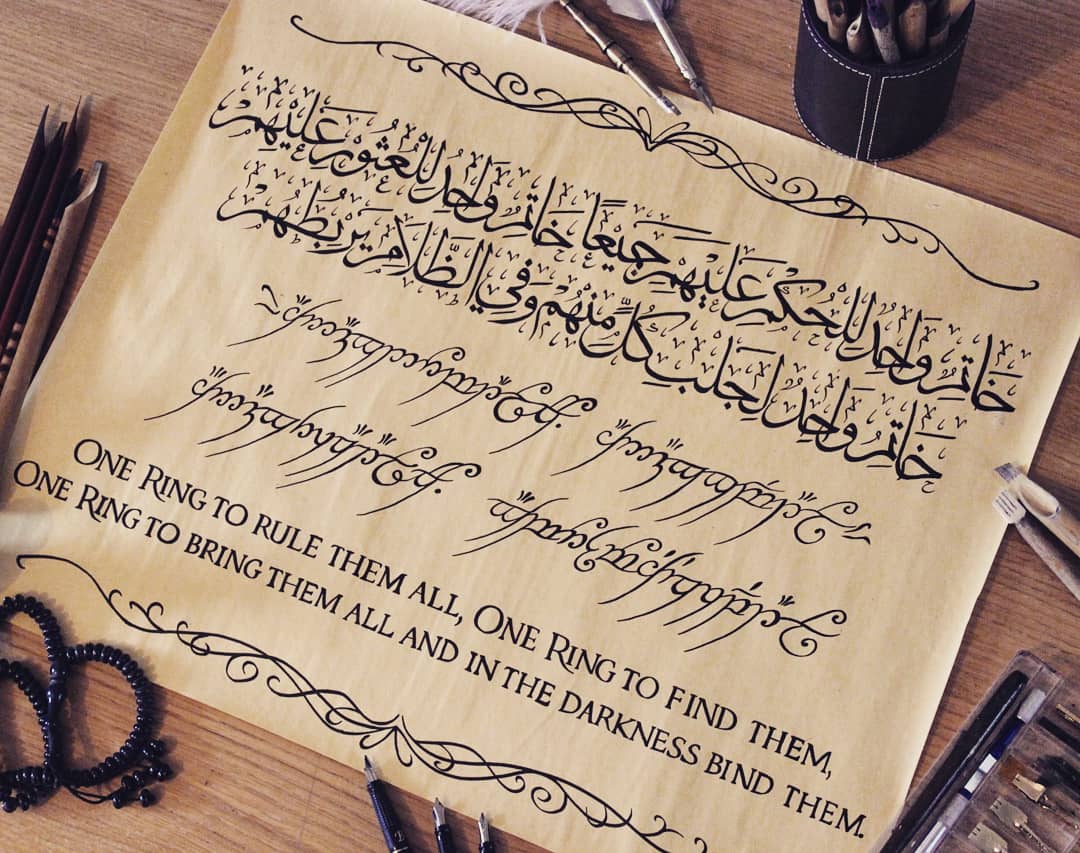 خَاتِمٌ وَاحِدٌ لِلْحُكْمِ عَلَيْهِمْ جَمِيْعًا خَاتِمٌ وَاحِدٌ لِلْعُثُوْرِ عَلَيْهِمْ
خَاتِمٌ وَاحِدٌ لِجَلْبِ كُلٍّ مِنْهُمْ وَفِي الظَّلَامِ يَرْبُطُهُمْ
One Ring to rule them all, One Ring to find them,
One Ring to bring them all and in the darkness bind them.